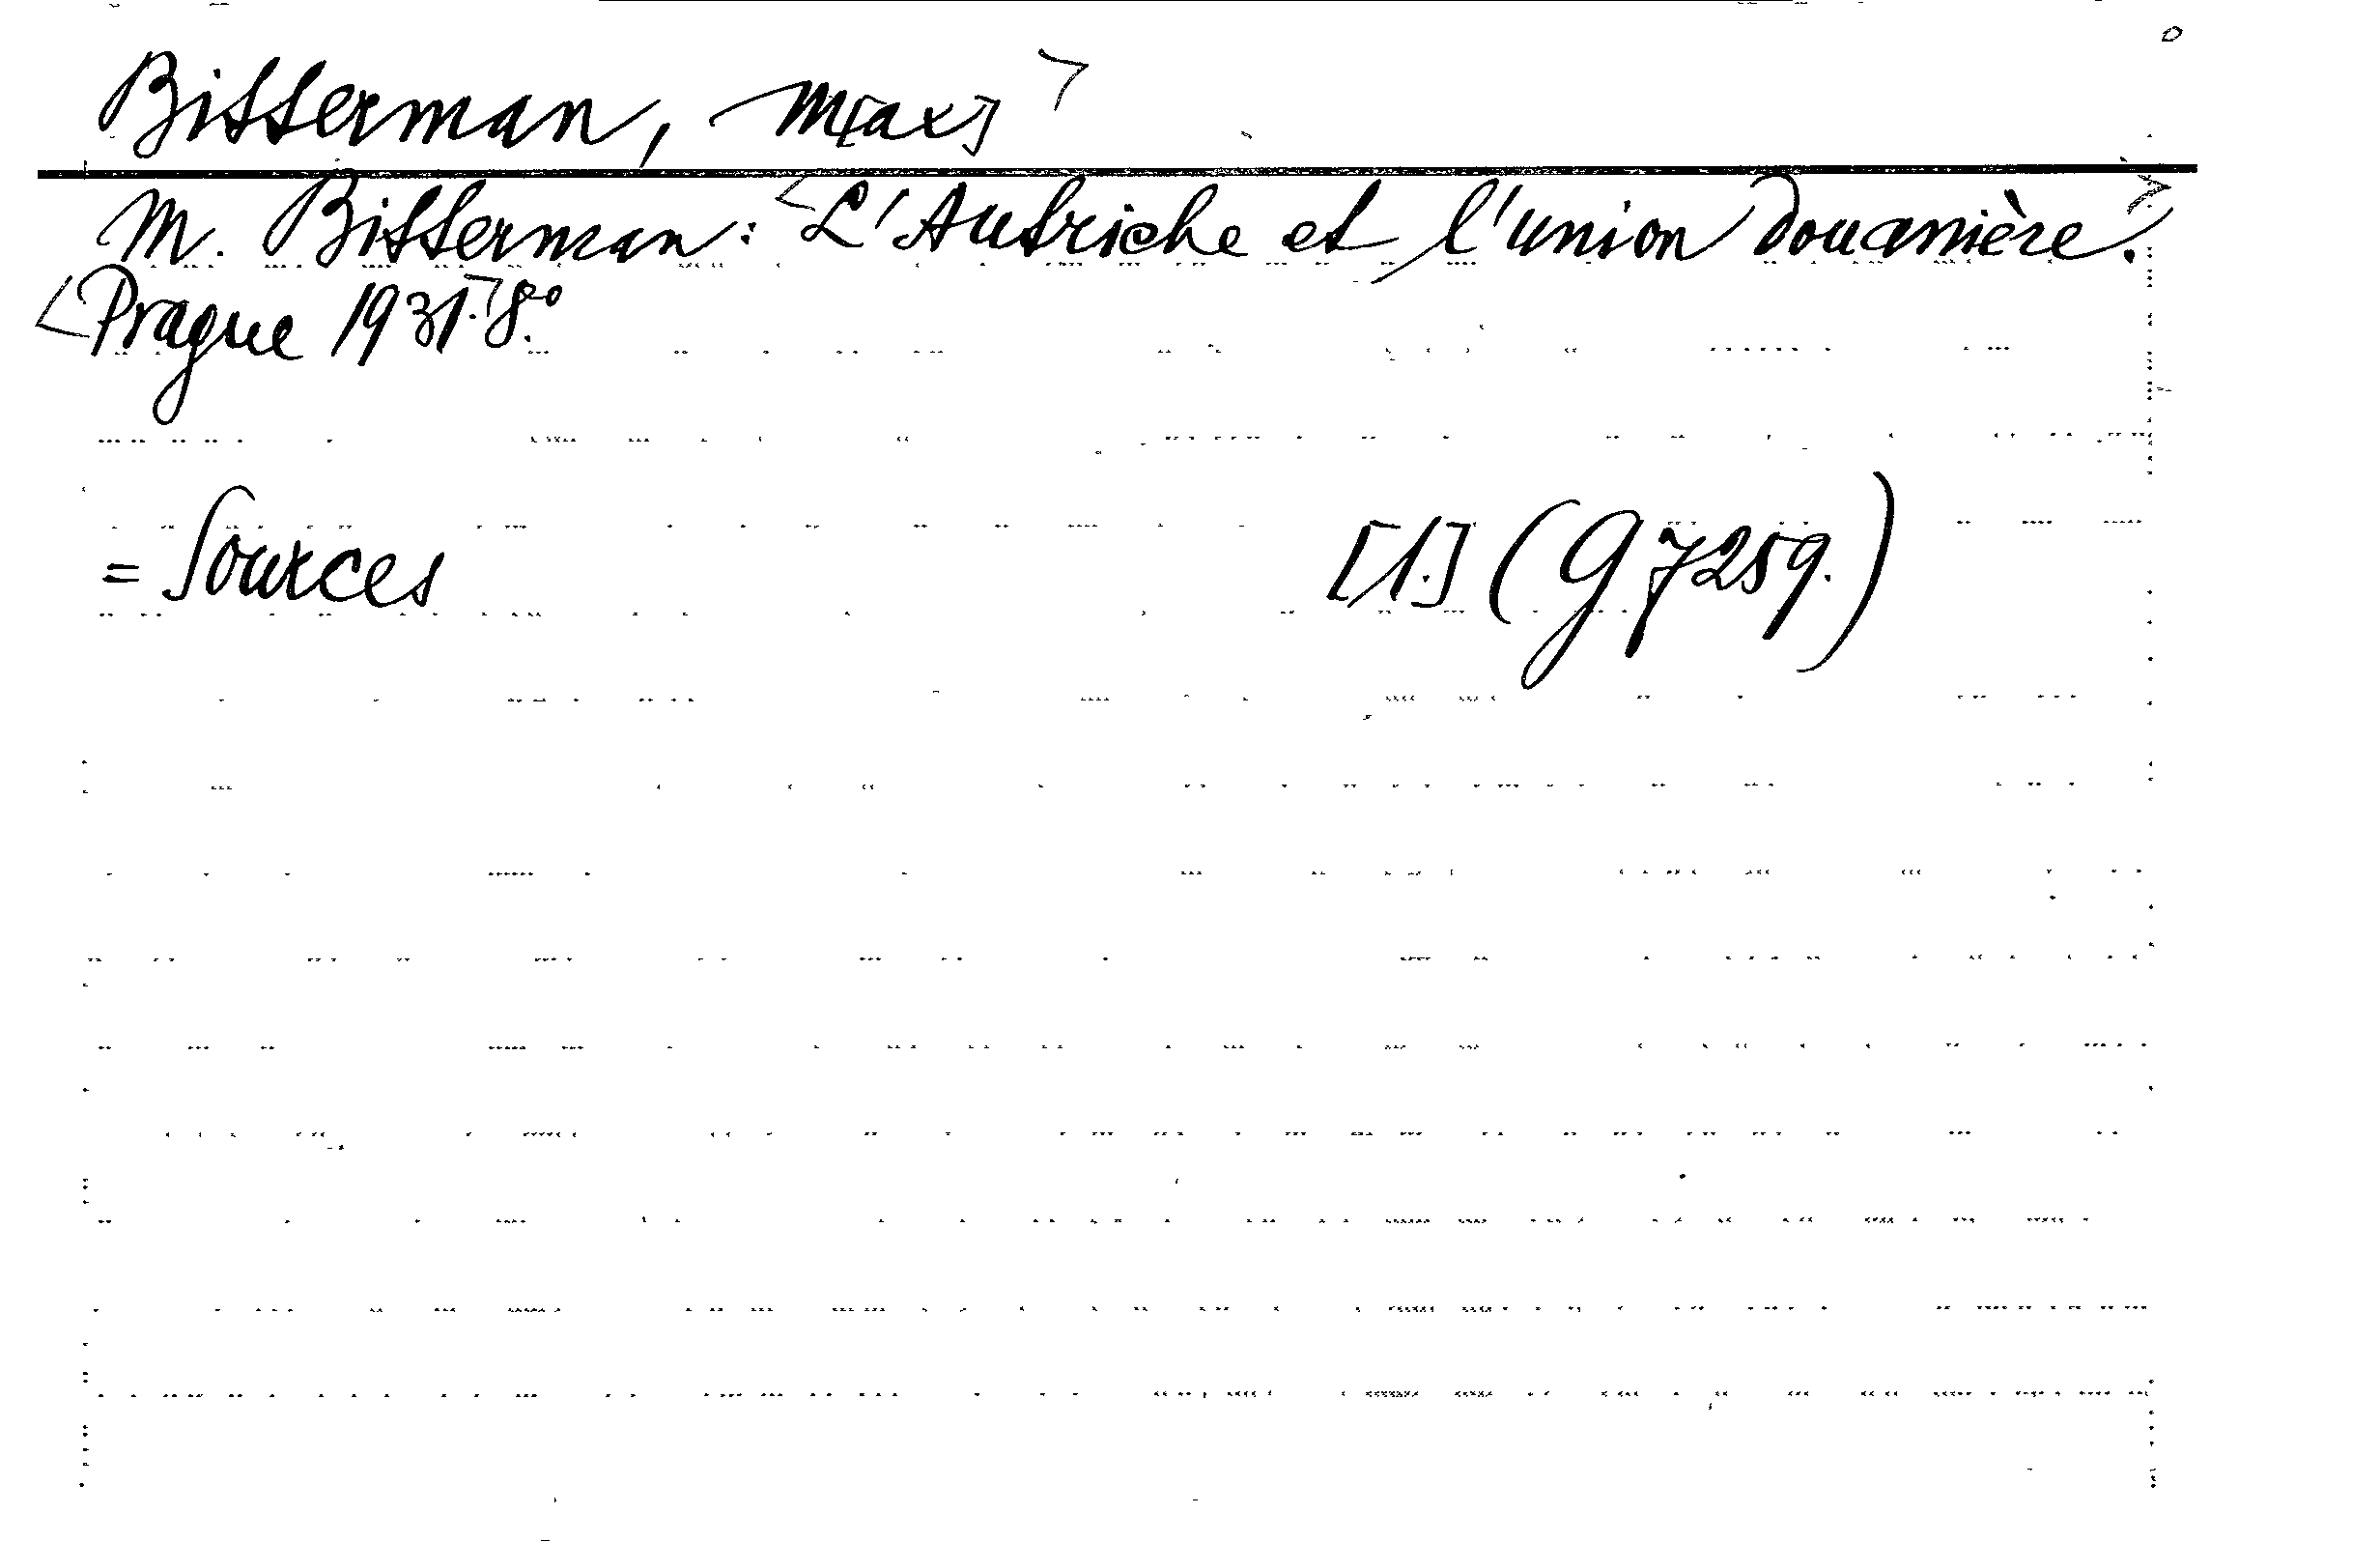 Bitterman, M[ax]
M. Bitterman: L'Autriche et l'union douanière.
Prague 1931. 8°.
= Sources [1.] (G 7259.)